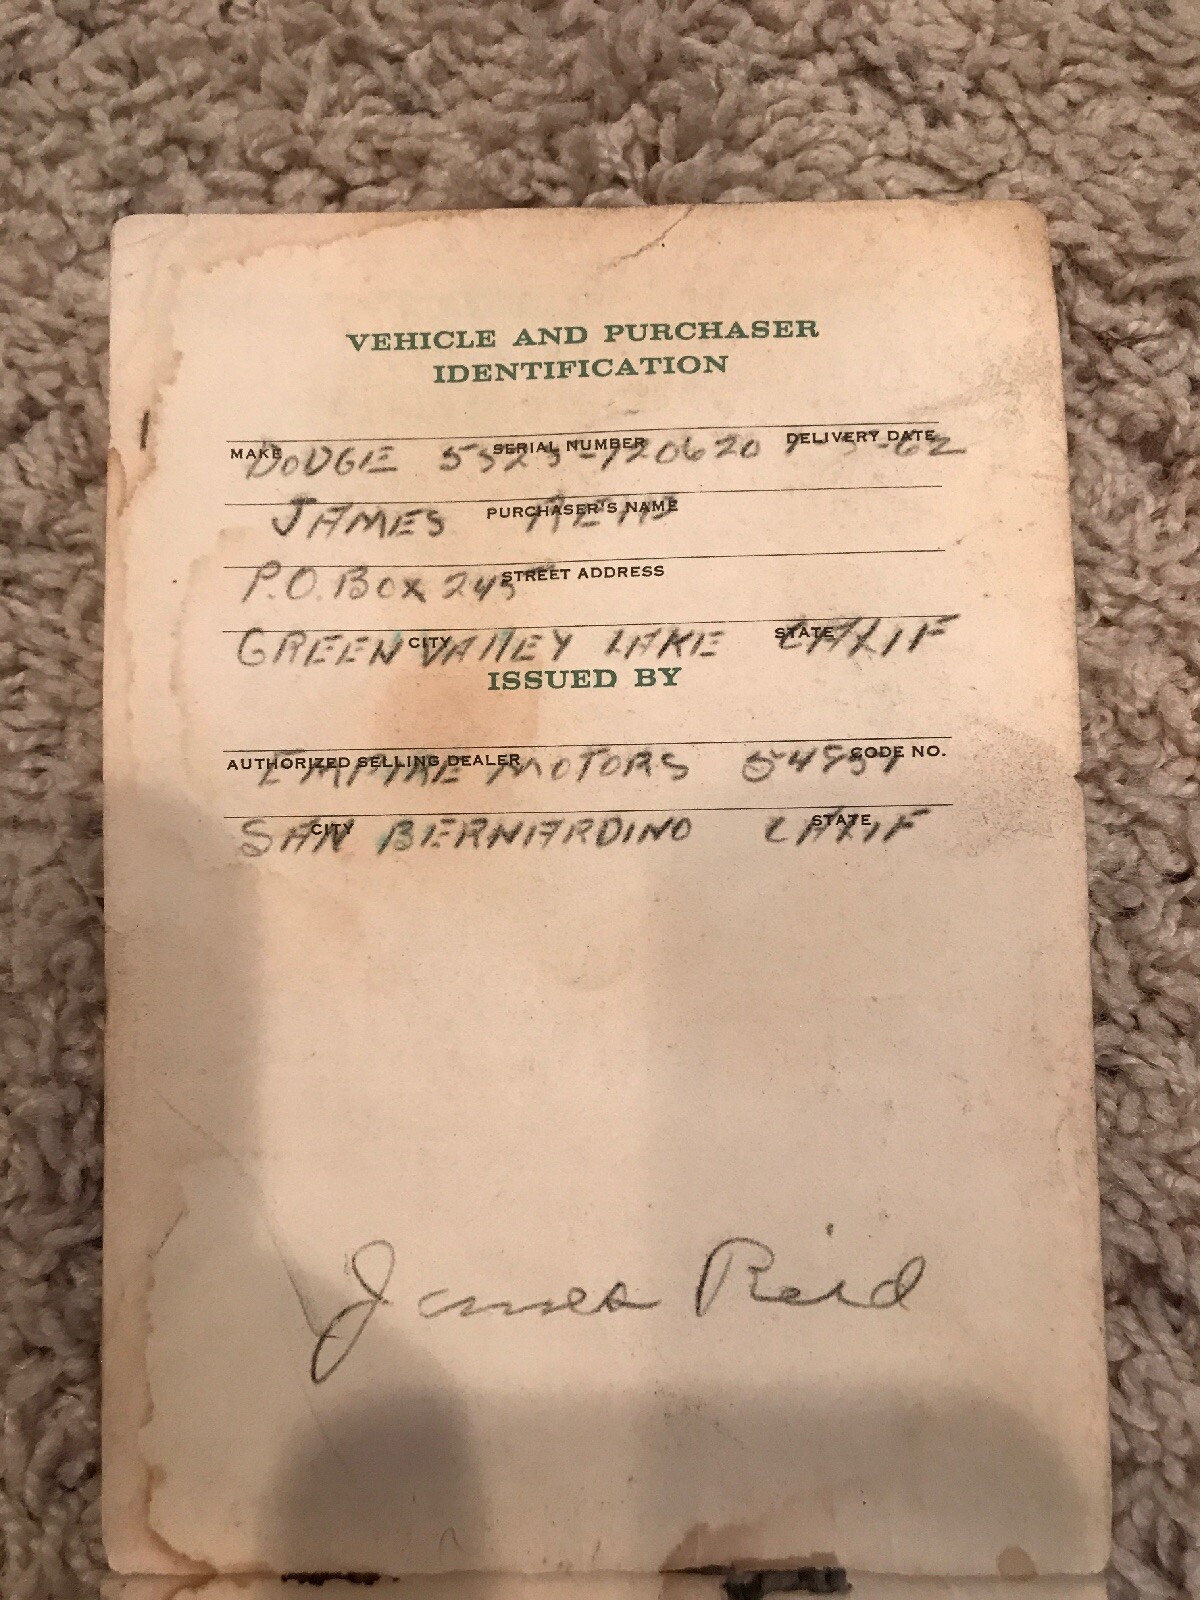 VEHICLE AND PURCHASER
IDENTIFICATION
MAKE SERIAL NUMBER DELIVERY DATE
DODGE
PURCHASER'S NAME
JAMES REID
STREET ADDRESS
P.O. BOX 245
CITY STATE
GREEN VALLEY LAKE CALIF
ISSUED BY
AUTHORIZED SELLING DEALER CODE NO.
EMPIRE MOTORS
CITY STATE
SAN BERNARDINO CALIF
James Reid